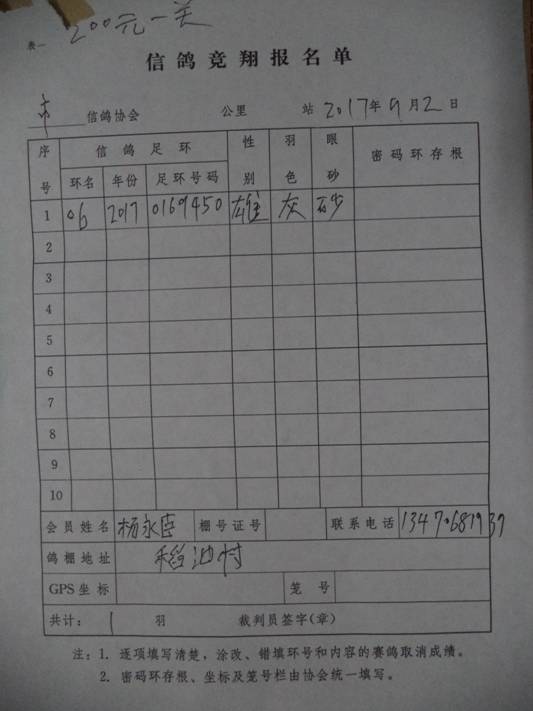 200元一关
表一
信鸽竞翔报名单
市 信鸽协会 公里 站 2017年9月2日
序号 信鸽足环 性别 羽色 眼砂 密码环存根
环名 年份 足环号码
1 06 2017 0169450 雄 灰 砂
2
3
4
5
6
7
8
9
10
会员姓名 杨永臣 棚号证号 联系电话
鸽棚地址 稻池村
GPS坐标 笼号
共计： 1 羽 裁判员签字(章)
注：1. 逐项填写清楚，涂改、错填环号和内容的赛鸽取消成绩。
2. 密码环存根、坐标及笼号栏由协会统一填写。